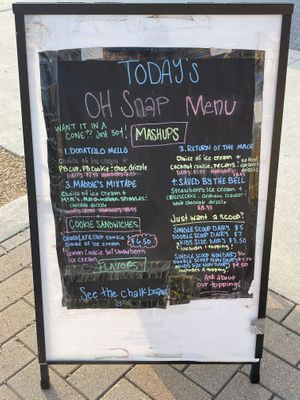 TODAY'S
OH Snap Menu
WANT IT IN A
CONE?? Just say!
MASHUPS
1. DONATELLO MELLO
Choice of ice cream +
PB cup, PB cookie, choc drizzle
3. MADDIE'S MIXTAPE
Choice of ice cream +
M+M's, Marshmallows, Sprinkles,
chocolate drizzle
COOKIE SANDWICHES
CHOCOLATE CHIP COOKIE
choice of ice cream
$6.50
Lemon Cookie w/ strawberry
ice cream
FLAVORS
See the chalkboard
2. RETURN OF THE MACK
Choice of ice cream +
coconut cookie, pecans, caramel
drizzle
4. SAVED BY THE BELL
Strawberry ice cream +
cheesecake, graham cracker
chocolate drizzle
$8.75
Just want a scoop?
SINGLE SCOOP DAIRY $5
DOUBLE SCOOP DAIRY $7
KIDS SIZE DAIRY $3.50
(includes 1 topping!)
SINGLE SCOOP NON DAIRY
DOUBLE SCOOP NON DAIRY
KIDS SIZE NON DAIRY $4.50
(includes 1 topping!)
Ask about
our toppings!